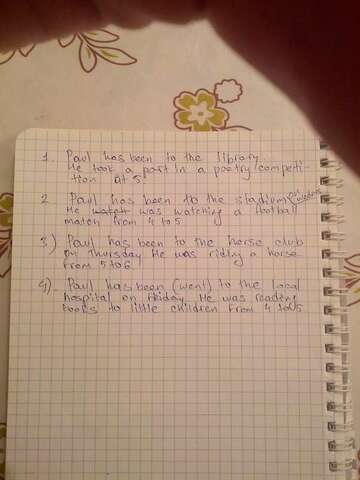 1. Paul has been to the library.
He took a part in a poetry competi-
tion at 5.
2. Paul has been to the stadium on
He watch was watching a football
match from 4 to 5
3) Paul has been to the horse club
on Thursday. He was riding a horse
from 5 to 6
4). Paul has been (went) to the local
hospital on Friday. He was reading
books to little children from 4 to 5